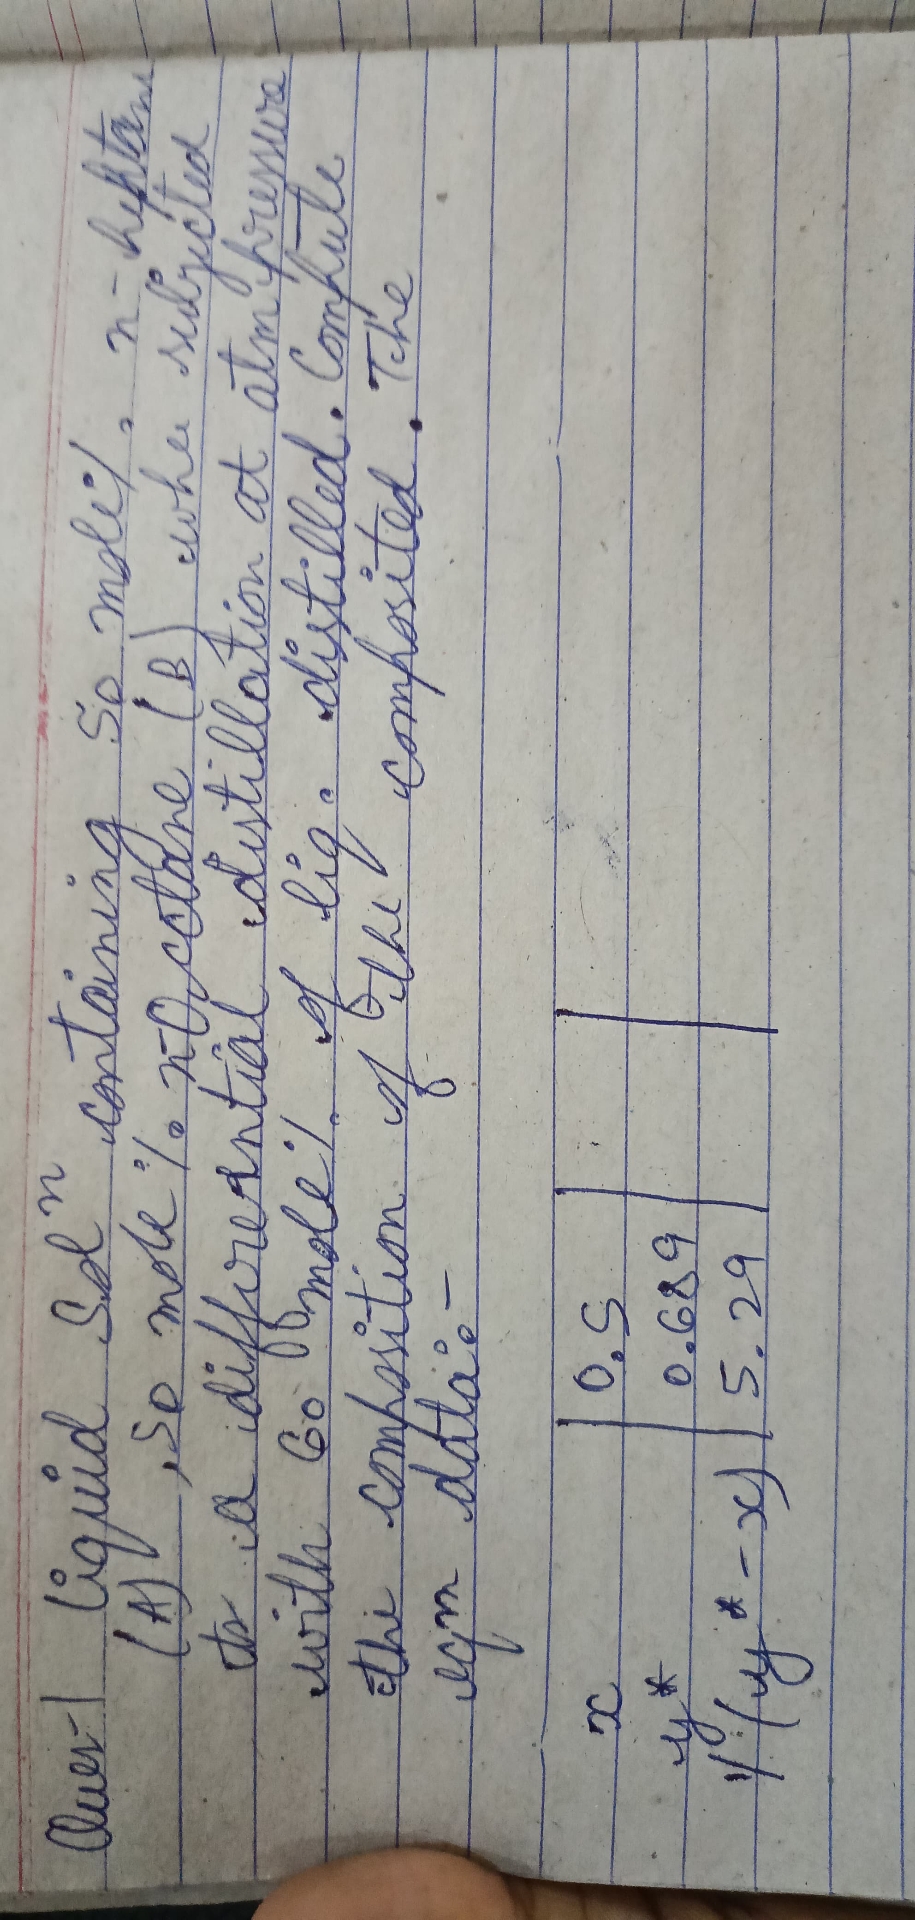 Ques-1 liquid Solⁿ containing 50 mole%. n-heptane
(A), 50 mole%. n-Octane (B) whe subjected
to a differential distillation at atm pressure
with 60 mole%. of liq. distilled. Compute
the composition of the composited. The
eqm data:-
x | 0.5 | |
y* | 0.689 | |
1/(y*-x) | 5.29 | |